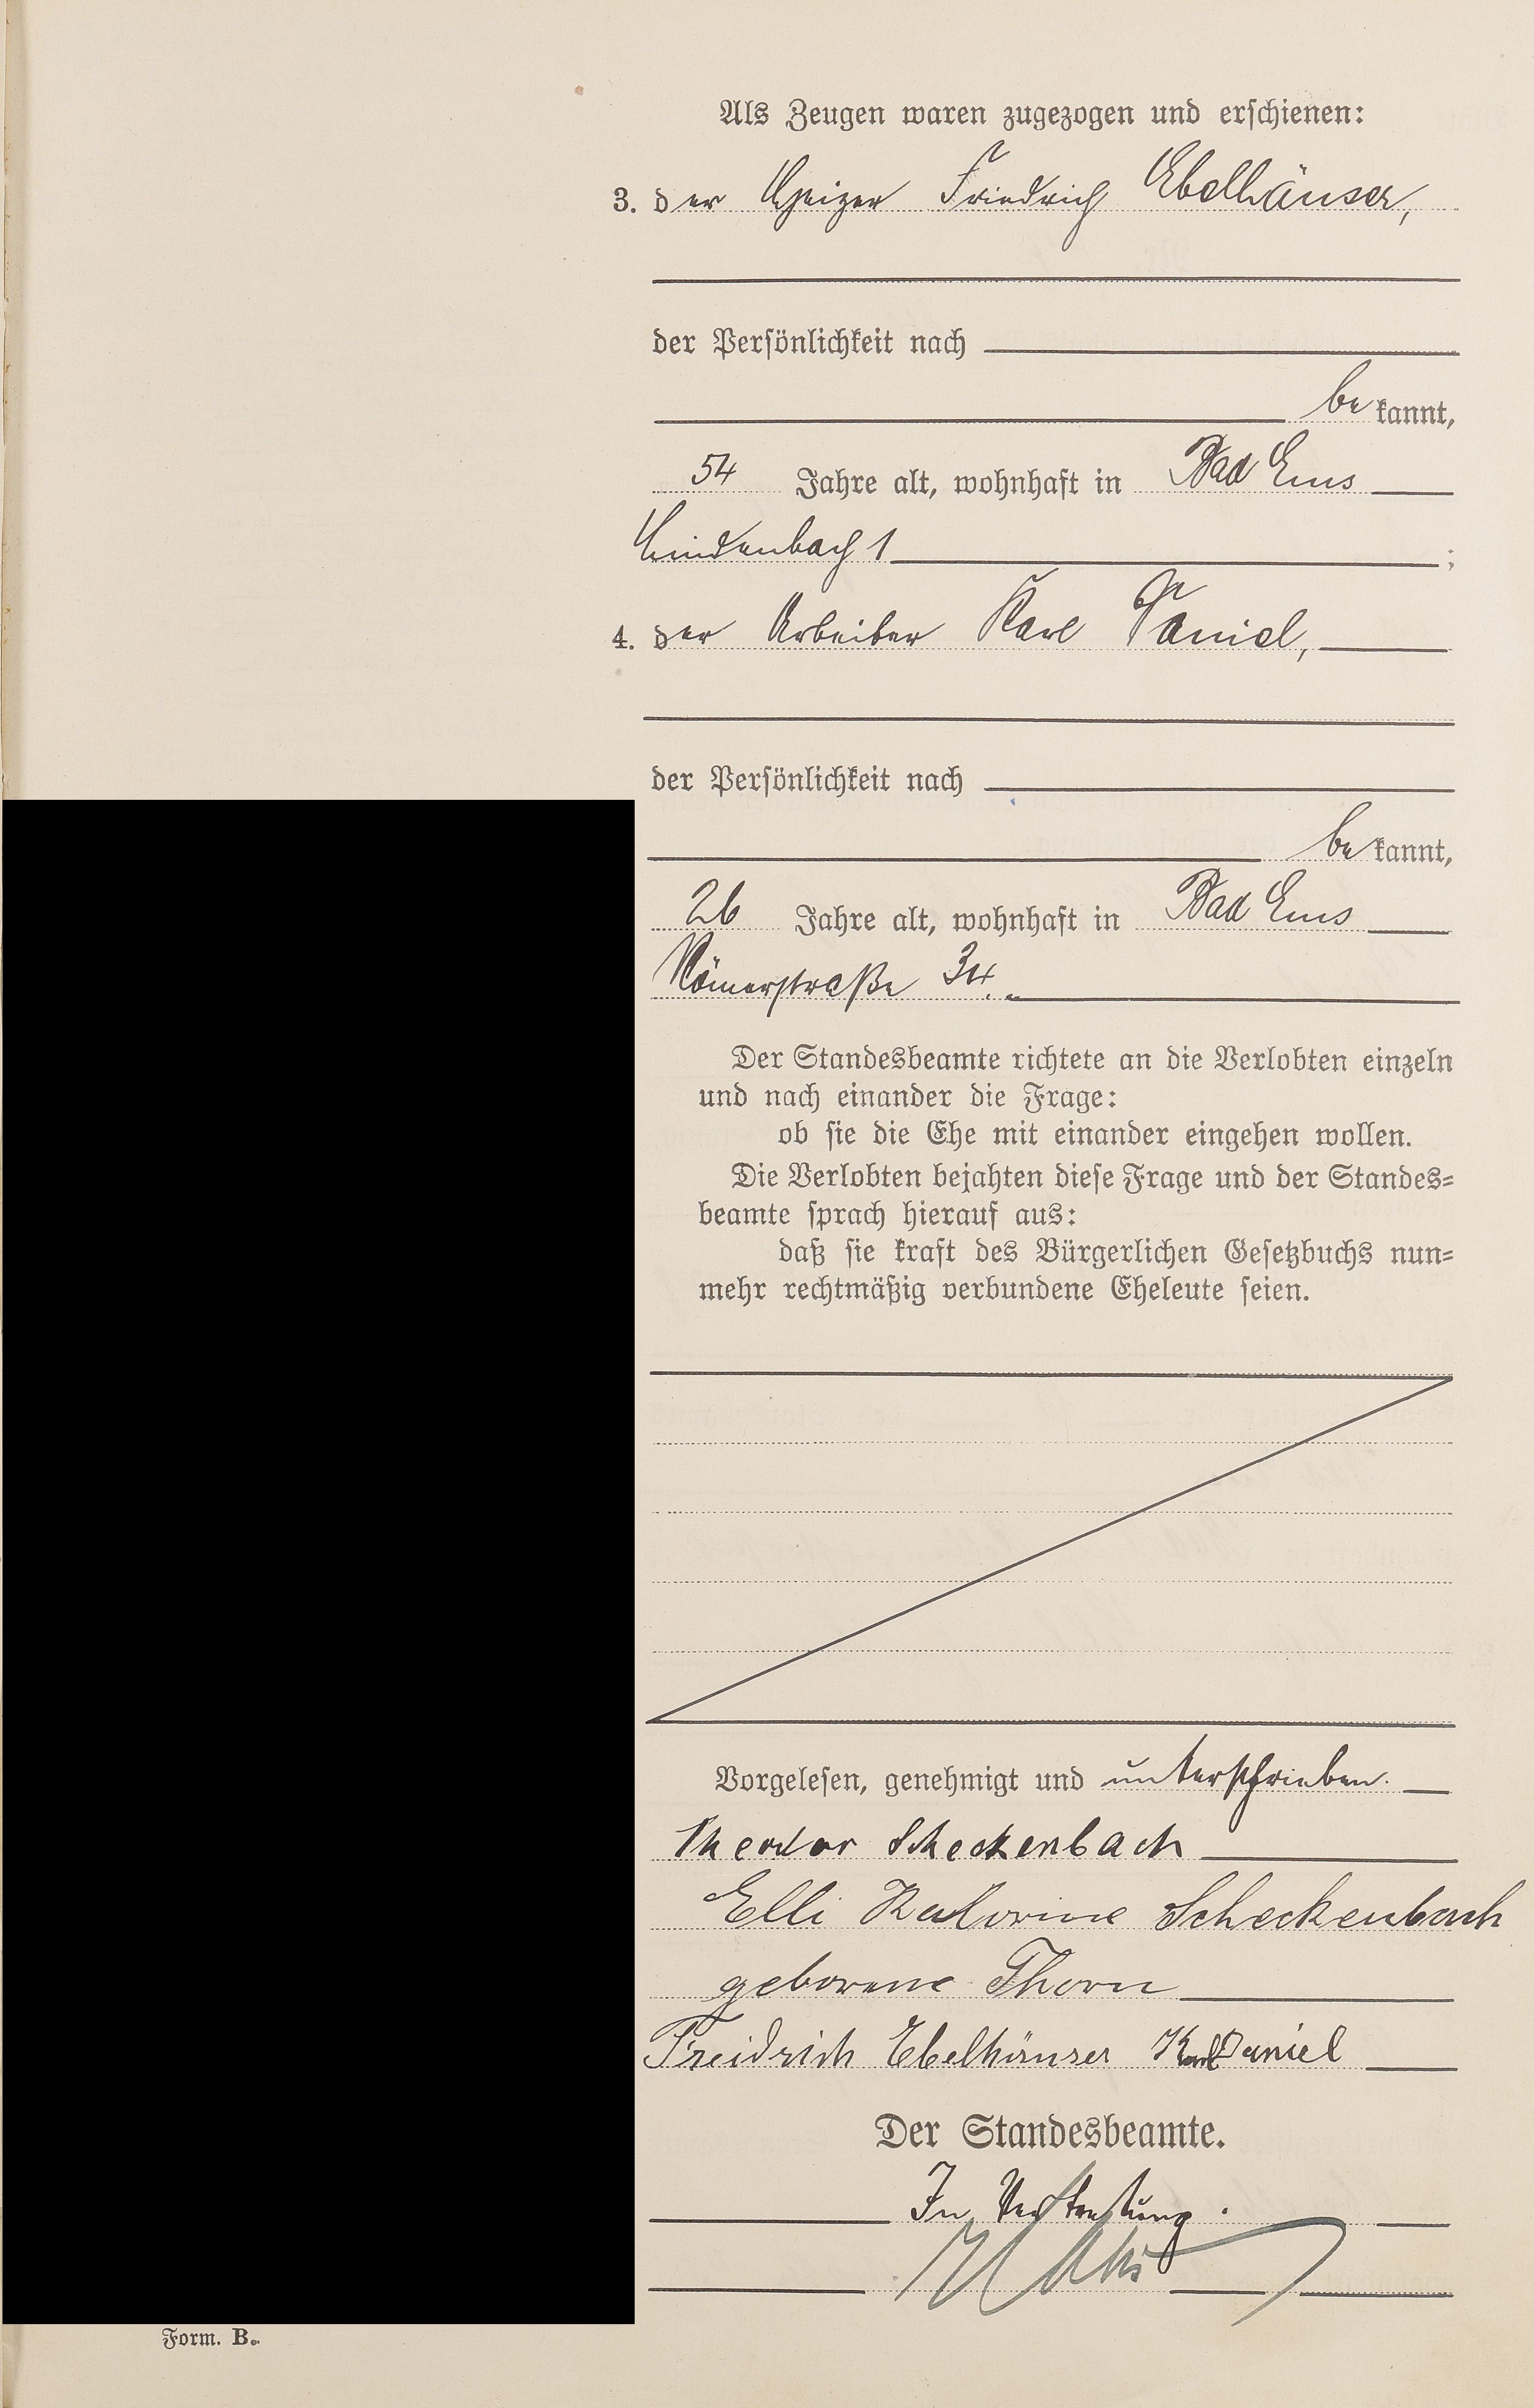 Als Zeugen waren zugezogen und erschienen:
3. der Heizer Friedrich Ebelhäuser,
der Persönlichkeit nach
bekannt,
54 Jahre alt, wohnhaft in Bad Ems
Lindenbach 1 ;
4. der Arbeiter Karl Daniel,
der Persönlichkeit nach
bekannt,
26 Jahre alt, wohnhaft in Bad Ems
Römerstraße 34.
Der Standesbeamte richtete an die Verlobten einzeln
und nach einander die Frage:
ob sie die Ehe mit einander eingehen wollen.
Die Verlobten bejahten diese Frage und der Standes=
beamte sprach hierauf aus:
daß sie kraft des Bürgerlichen Gesetzbuchs nun=
mehr rechtmäßig verbundene Eheleute seien.
Vorgelesen, genehmigt und unterschrieben.
Theodor Scheckenbach
Elli Katorine Scheckenbach
geborene Thorn
Freidrich Ebelhäuser Karl Daniel
Der Standesbeamte.
In Vertretung.
Form. B.